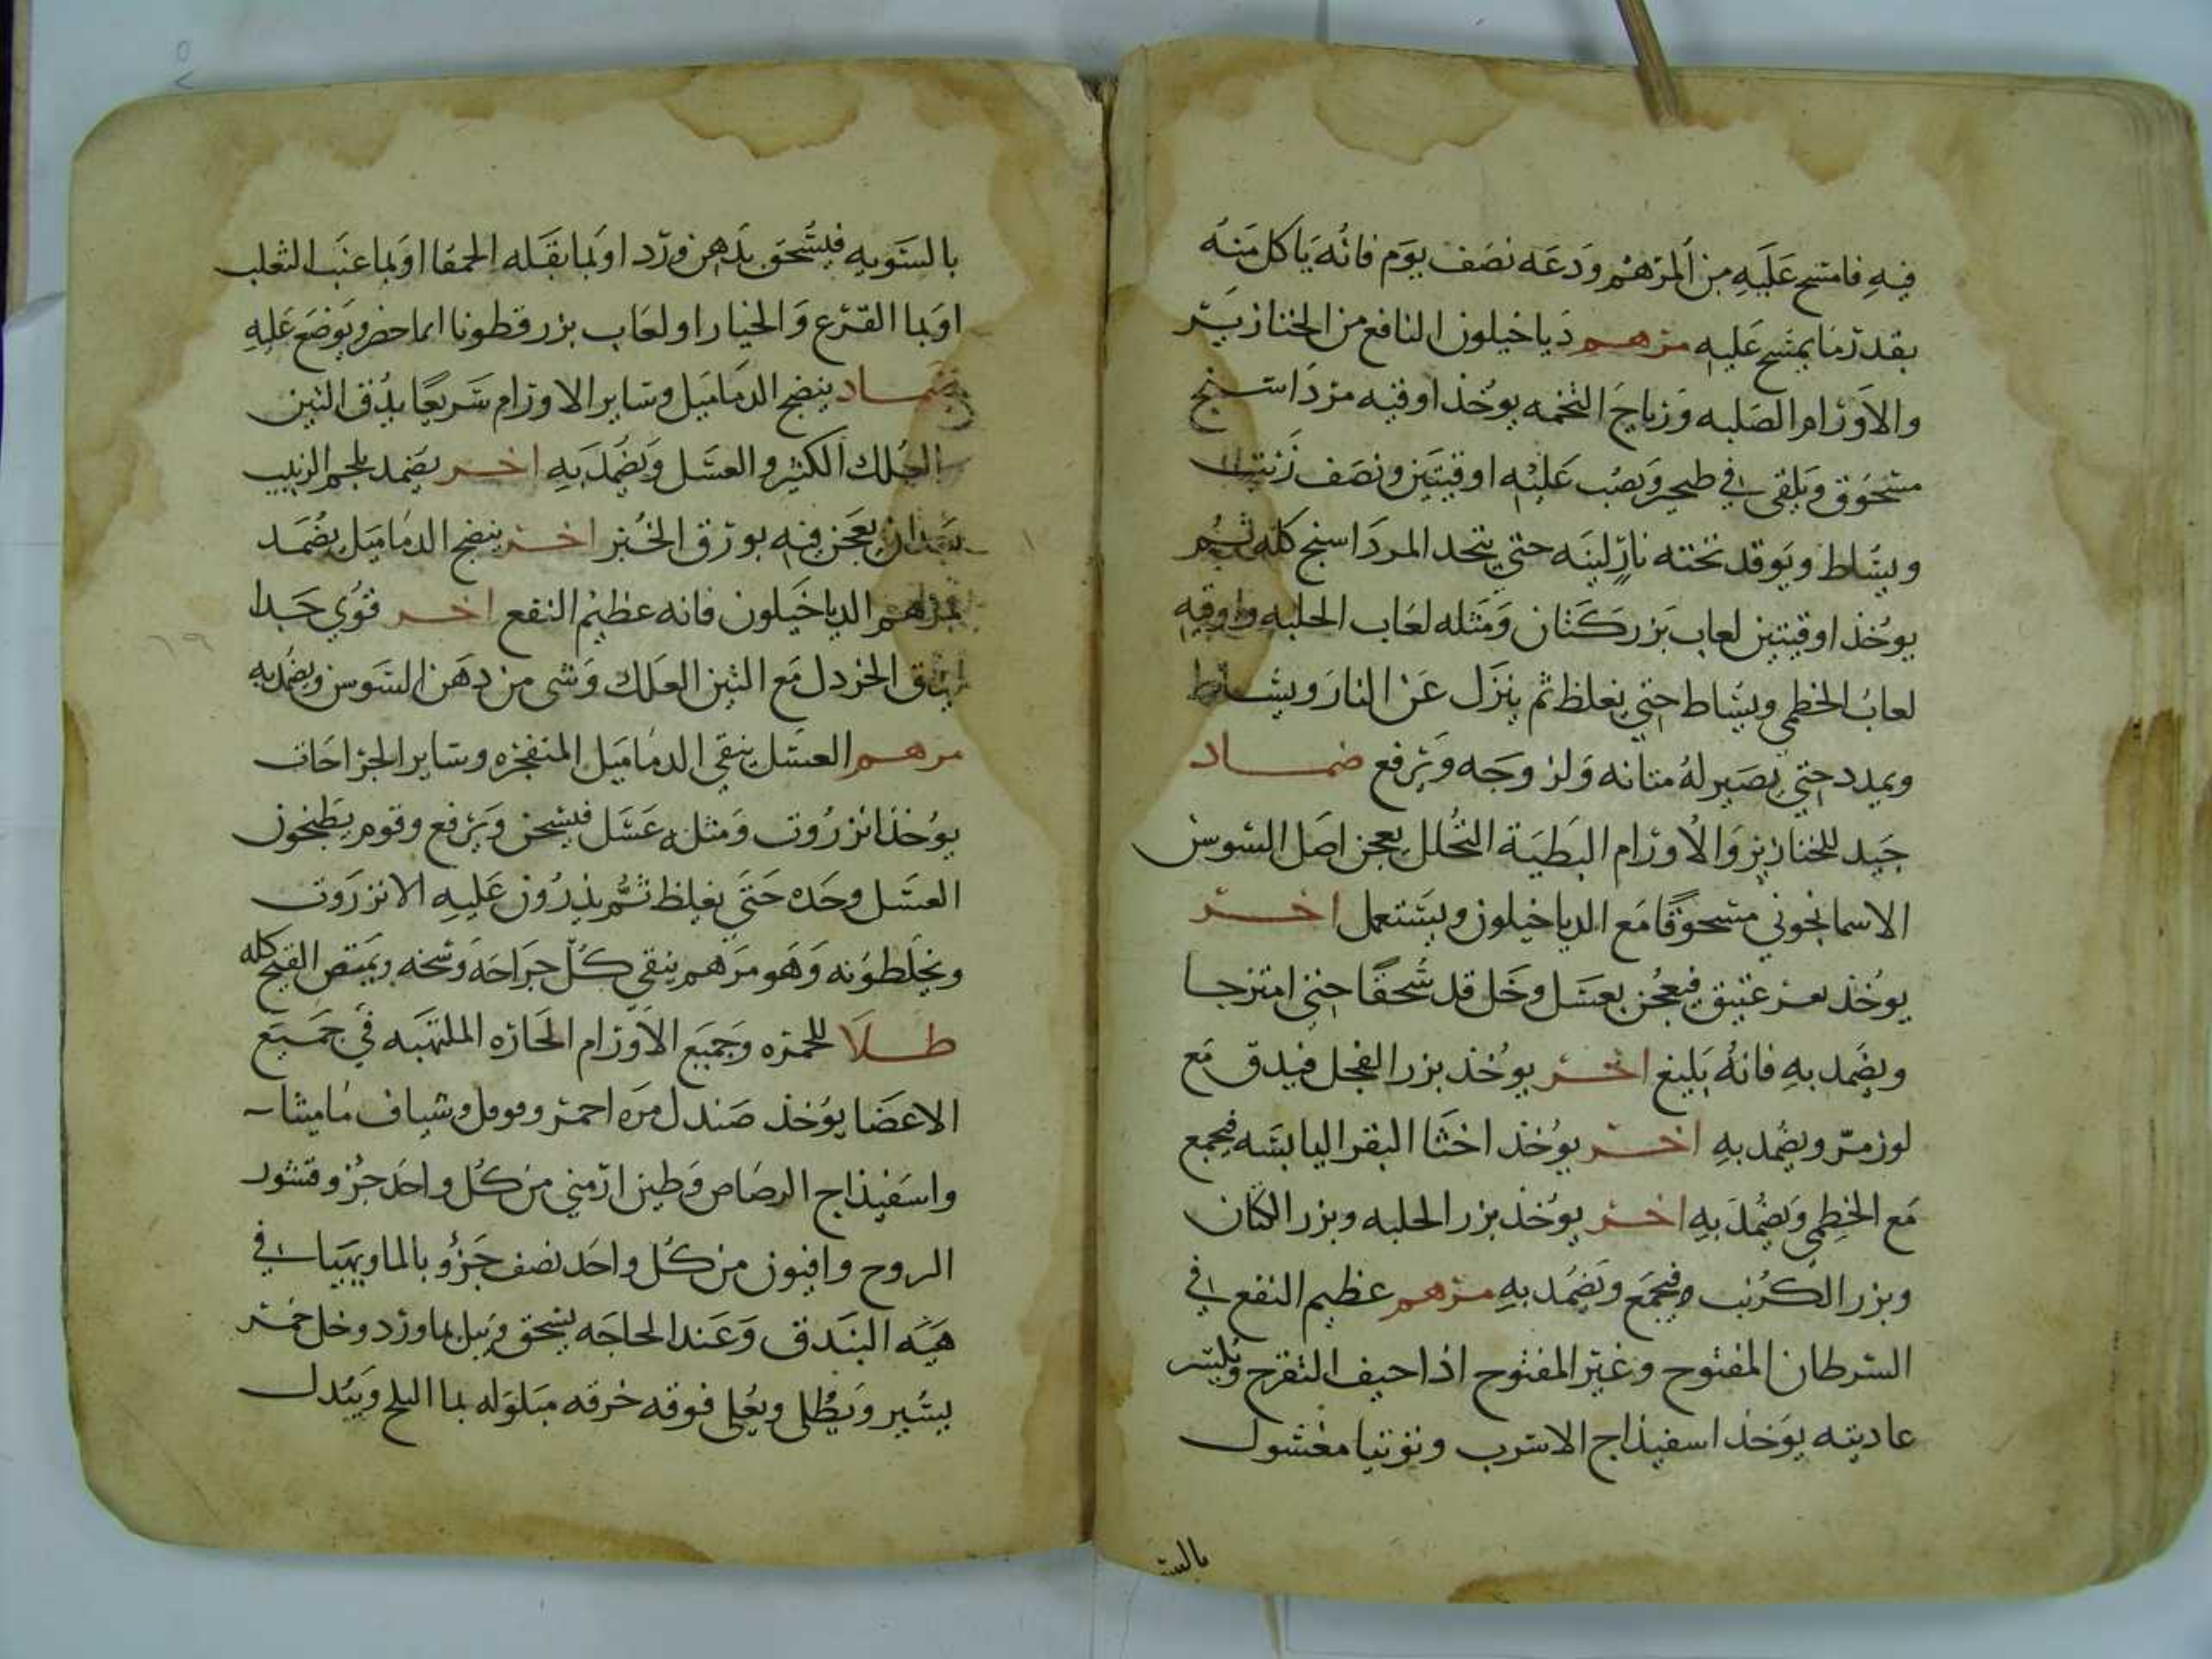 فيه فامسح عليه من المرهم ودعه نصف يوم فانه ياكل منه
بقدر ما يمسح عليه مرهم دياخيلون النافع من الخنازير
والاورام الصلبه ورياح التخمه يوخذ اوقيه مرداسنج
مسحوق ويلقى في طنجير ويصب عليه اوقيتين ونصف زيت
ويساط ويوقد تحته نار لينه حتى يتحد المرداسنج كله ثم
يوخذ اوقيتين لعاب بزر كتان ومثله لعاب الحلبه واوقيه
لعاب الخطمي ويساط حتى يغلظ ثم ينزل عن النار ويساط
ويمدد حتى يصير له متانه ولزوجه ويرفع ضماد
جيد للخنازير والاورام البطية التحلل يعجن اصل السوس
الاسمانجوني مسحوقا مع الدياخيلون ويستعمل اخر
يوخذ بعر عتيق فيعجن بعسل وخل قد سحقا حتى امتزجا
ويضمد به فانه بليغ اخر يوخذ بزر الفجل فيدق مع
لوز مر ويضمد به اخر يوخذ اخثا البقر اليابسه فيجمع
مع الخطمي ويضمد به اخر يوخذ بزر الحلبه وبزر الكتان
وبزر الكرنب فيجمع ويضمد به مرهم عظيم النفع في
السرطان المفتوح وغير المفتوح اذا خيف التقرح ويكسر
عاديته يوخذ اسفيذاج الاسرب وتوتيا مغسول
بالسـ
بالسويه فيسحق بدهن ورد او بما بقله الحمقا او بما عنب الثعلب
او بما القرع والخيار او لعاب بزر قطونا ايما حضر ويوضع عليه
ضماد ينضج الدماميل وساير الاورام سريعا يدق التين
العلك الكثير العسل ويضمد به اخر يضمد بلحم الزبيب
بعد ان يعجن فيه بورق الخبز اخر ينضج الدماميل يضمد
بمرهم الدياخيلون فانه عظيم النفع اخر قوي جدا
يدق الخردل مع التين العلك وشى من دهن السوسن ويضمد به
مرهم العسل ينقي الدماميل المنفجره وساير الجراحات
يوخذ انزروت ومثله عسل فيسحن ويرفع وقوم يطبخون
العسل وحده حتى يغلظ ثم يذرون عليه الانزروت
ويخلطونه وهو مرهم ينقي كل جراحه وسخه ويمتص القيح كله
طلا للحمره وجميع الاورام الحاره الملتهبه في جميع
الاعضا يوخذ صندل مره احمر وفوفل وشياف ماميثا
واسفيذاج الرصاص وطين ارمني من كل واحد جزو وقشور
الروح وافيون من كل واحد نصف جزؤ بالما ويهيا في
هيه البندق وعند الحاجه يسحق ويبل بما ورد وخل خمر
يسير ويطلى ويعلى فوقه خرقه مبلوله بما الثلج ويبدل